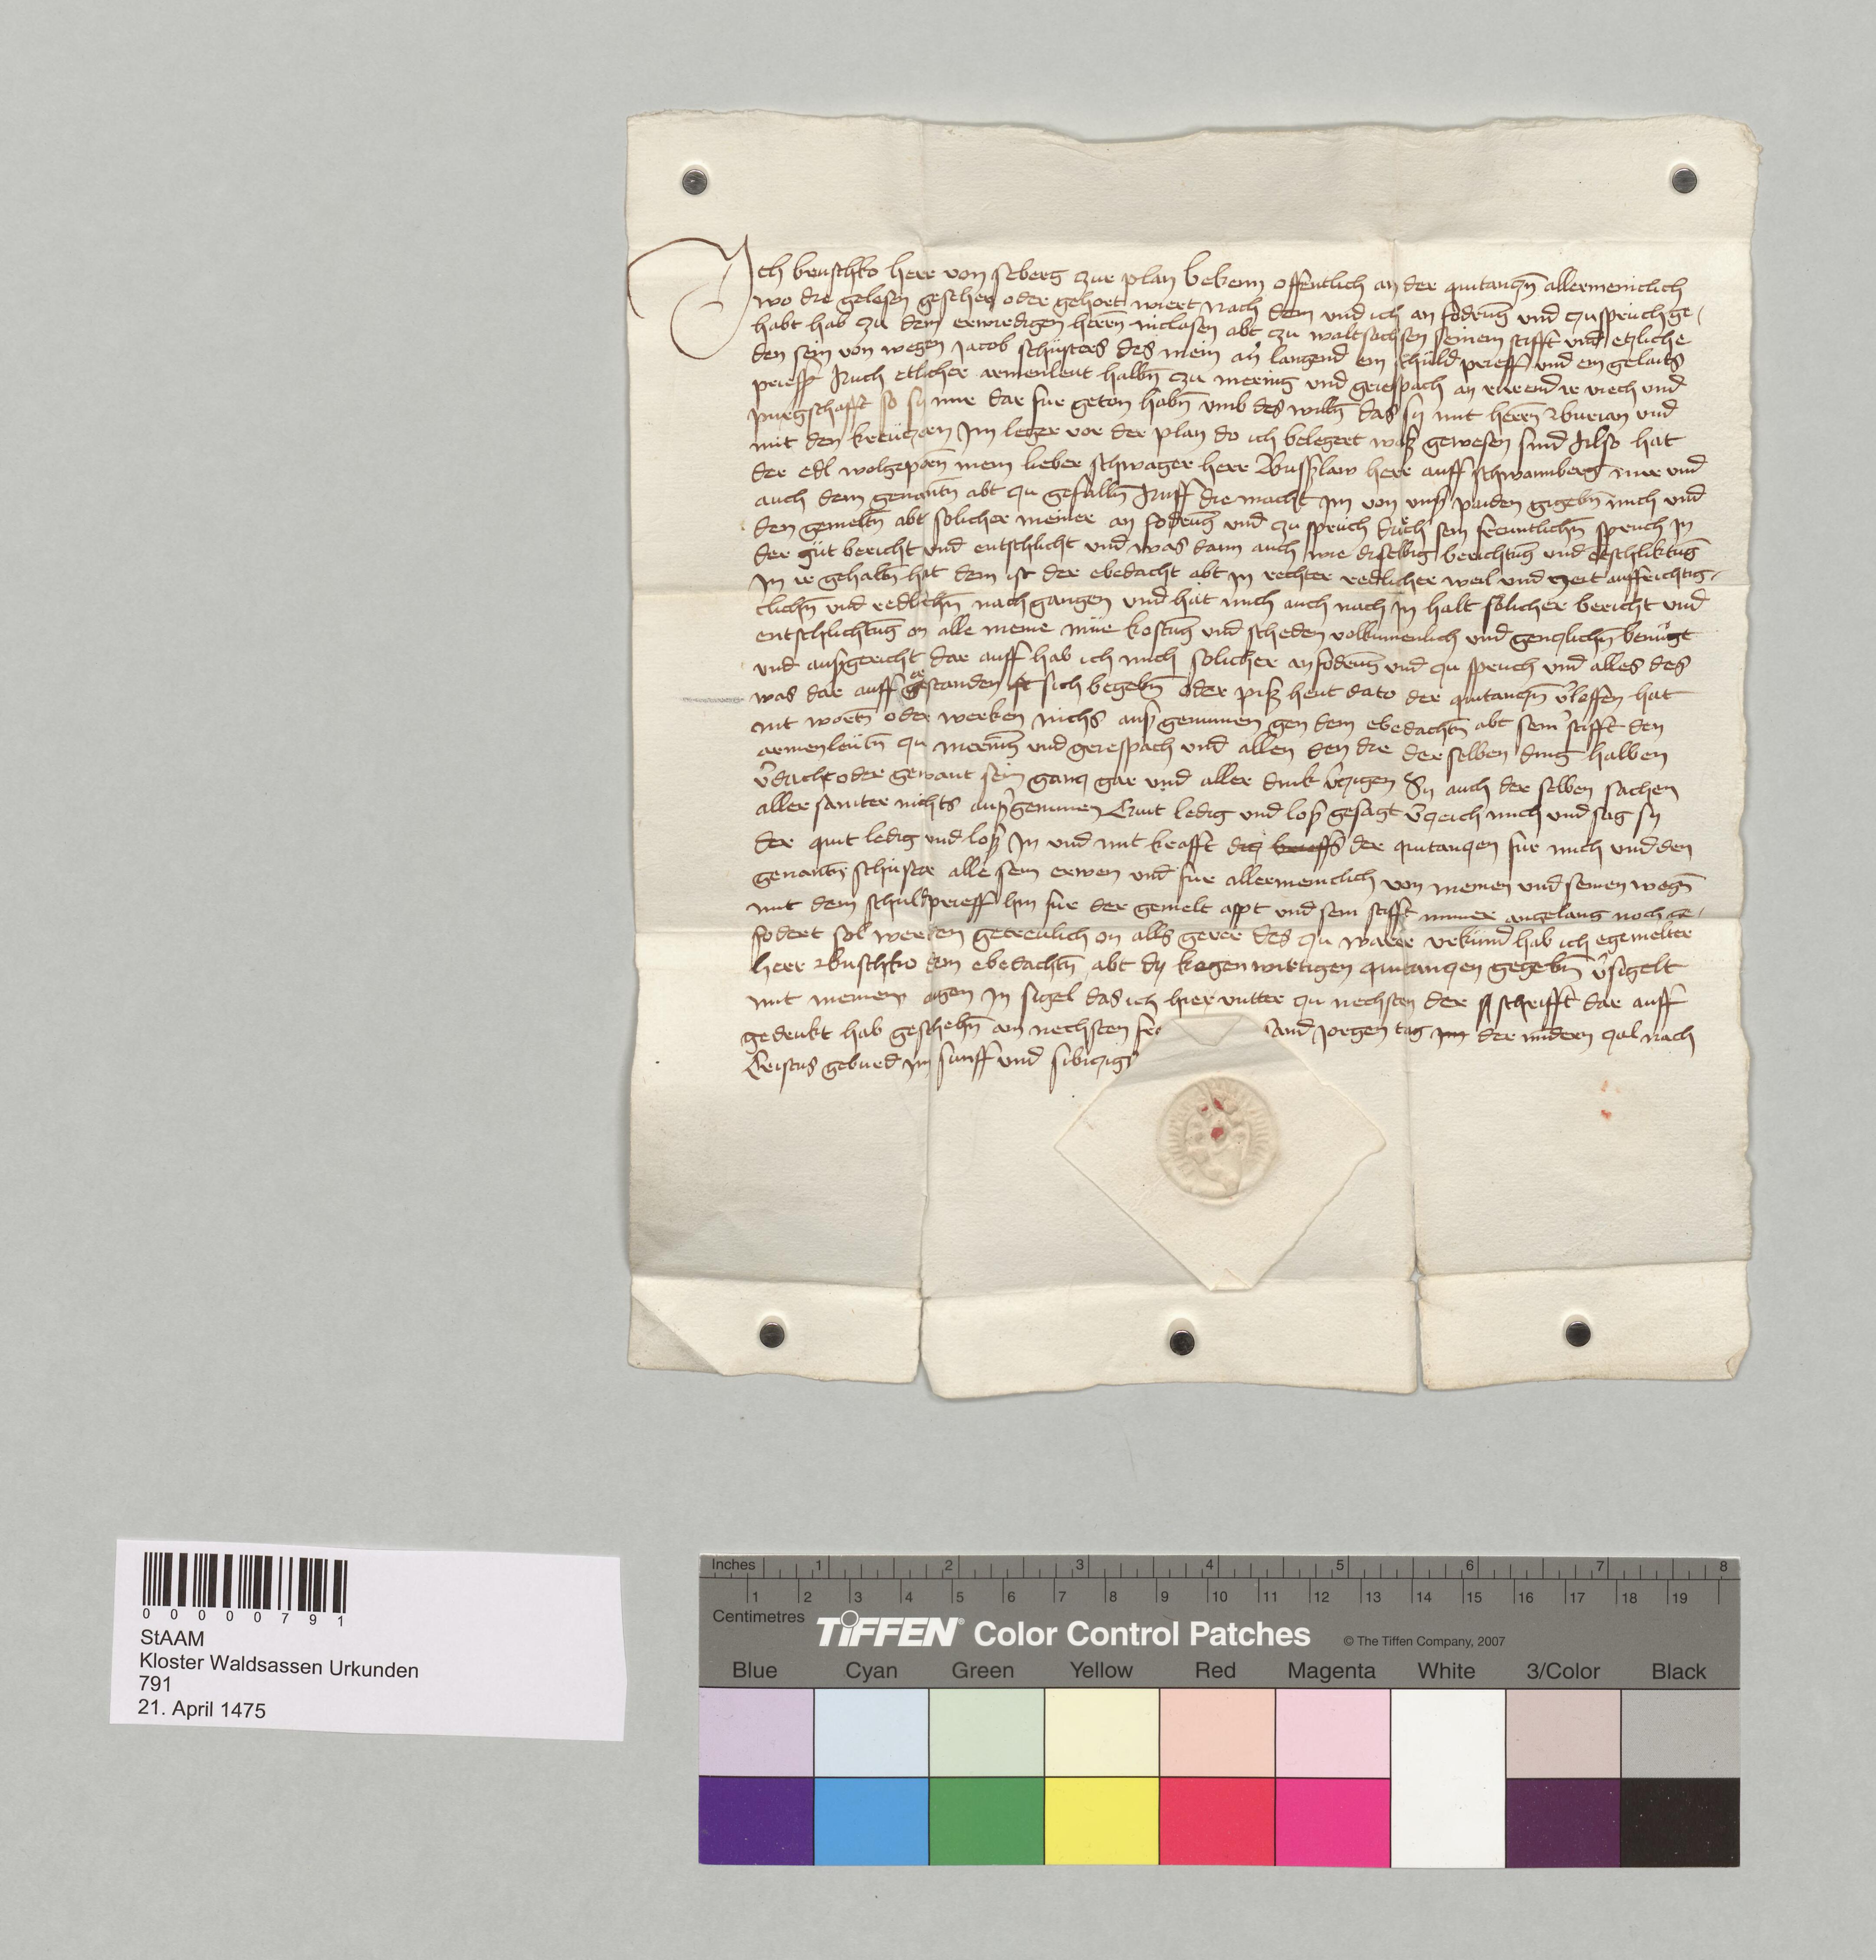 Ich buschko herr von seberg zur plan bekenn offentlich an der quitanczn̄ allermeniclich
wo die gelesen gesehen oder gehort wiert Nach dem vnd ich an fodrūg vnd zuspruch ge-
habt hab zu dem erwirdigen herrn̄ niclasen abt zu waltsachsen seinem stifft vnd etzliche
den sein von wegen Jacob schusters des mein an langend ein schuld prieff vnd ein gelaits
prieff Auch etlicher armenleut halbn̄ zu mering vnd griespach an rurend ir viech vnd
purgschafft so sy mir dar fur geton habn̄ vmb des willn̄ das sy mit herrn̄ Burian vnd
mit den kreuczern Im leger vor der plan do ich belegert waß gewesen sind Also hat
der edl wolgeporn̄ mein lieber schwager herr Bußlaw herr auff schwannberg mir vnd
auch dem genantn̄ abt zu gefalln̄ Auff die macht Im von vnß paiden gegebn̄ mich vnd
den gemeltn̄ abt solicher meiner an fodrūg vnd zu spruch durch sein freuntlichn̄ spruch In
der gut bericht vnd entschlicht vnd was dann auch wie dieselbig berichtūg vnd etschlichtūg
In ir gehaltn̄ hat dem ist der ebedacht abt In rechter redlicher weil vnd zeit auffrichtig-
clichn̄ vnd redlichn̄ nach gangen vnd hat mich auch nach In halt solicher bericht vnd
entschlichtūg on alle meine mue kostūg vnd scheden volkumenlich vnd genczlichn̄ benugt
vnd außgericht dar auff hab ich mich solicher anfodrūg vnd zu spruch vnd alles des
was dar auff gestanden sich begebn̄ oder piß heut dato der quitanczn̄ v̄loffen hat
mit wortn̄ oder werken nichs auß genumen gen dem ebedachtn̄ abt sein̄ stifft den
armenleutn̄ zu mering vnd griespach vnd allen den die der selben ding halben
v̄dacht oder gewant sein gancz gar vnd aller dink v̄zigen Sy auch der selben sachen
aller samter nichts außgenumen Quit ledig vnd loß gesagt v̄zeich mich vnd sag sy
der quit ledig vnd loß In vnd mit krafft dicz brieffs der quitanczen fur mich vnd den
genantn̄ schuster alle sein erwen vnd fur allermeniclich von meinen vnd seinen wegn̄
mit dem schuldprieff hin fur der gemelt appt vnd sein stifft nimer angelang noch ge-
fodert sol werden getreulich on alls gever des zu warer vrkund hab ich egemelter
herr Buschko dem ebedachtn̄ abt dy kegenwirtigen quitanczen gegebn̄ v̄sigelt
mit meinem aigen In sigel das ich hier vntter zu nechsten der schrifft dar auff
gedrukt hab geschehn̄ am nechsten fre sand Jorgen tag der mindern zal nach
Cristus geburd Im funff vnd sibiczigs
00000791
StAAM
Kloster Waldsassen Urkunden
791
21. April 1475
Inches 1 2 3 4 5 6 7 8
1 2 3 4 5 6 7 8 9 10 11 12 13 14 15 16 17 18 19
Centimetres
TIFFEN® Color Control Patches © The Tiffen Company, 2007
Blue Cyan Green Yellow Red Magenta White 3/Color Black